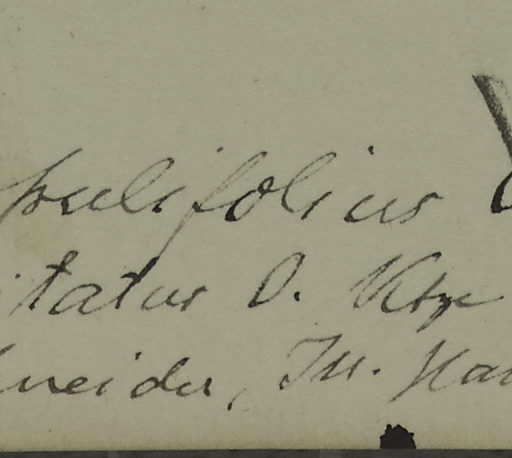 pulifolius
itatus O. Ktze
hneider, Ill. Han